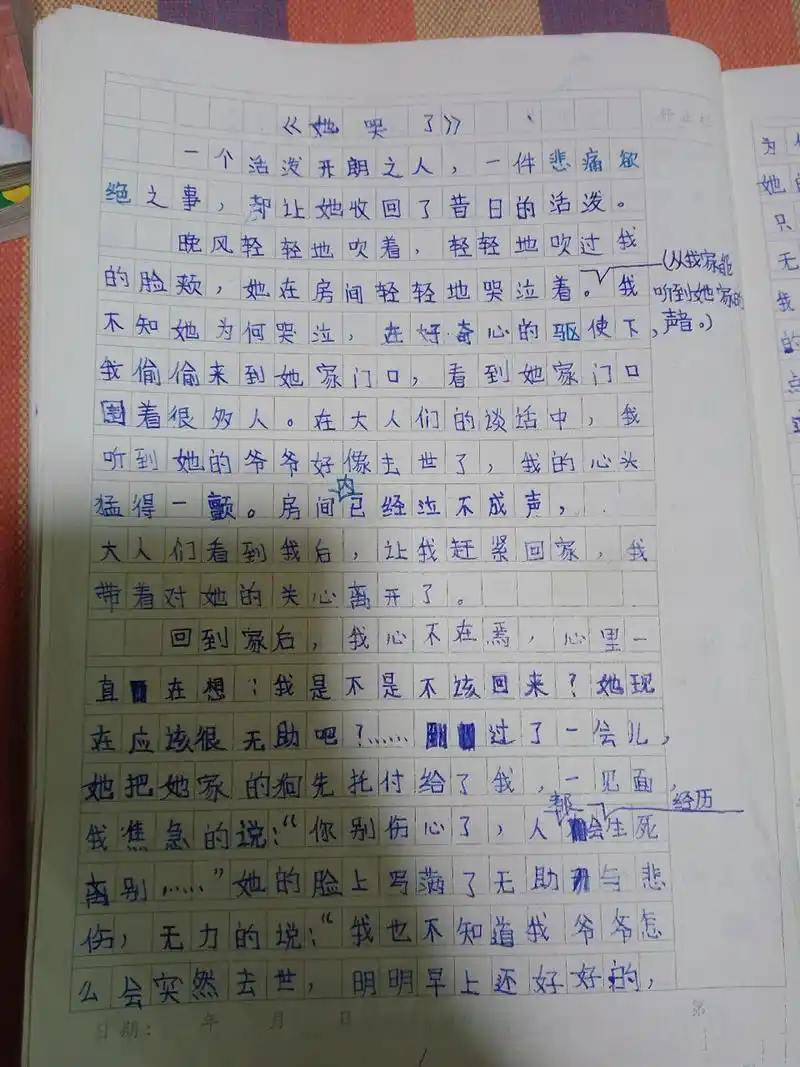 《她哭了》
一个活泼开朗之人，一件悲痛欲
绝之事，却让她收回了昔日的活泼。
晚风轻轻地吹着，轻轻地吹过我
的脸颊，她在房间轻轻地哭泣着。我
（从我家能
听到她家的
声音。）
不知她为何哭泣，在好奇心的驱使下，
我偷偷来到她家门口，看到她家门口
围着很多人。在大人们的谈话中，我
听到她的爷爷好像去世了，我的心头
猛得一颤。房间内已经泣不成声，
大人们看到我后，让我赶紧回家，我
带着对她的关心离开了。
回到家后，我心不在焉，心里一
直在想：我是不是不该回来？她现
在应该很无助吧？……过了一会儿，
她把她家的狗先托付给了我，一见面，
我焦急的说：“你别伤心了，人都会经历生死
离别……”她的脸上写满了无助与悲
伤，无力的说：“我也不知道我爷爷怎
么会突然去世，明明早上还好好的，
日期： 年 月 日
第
为
她的
只
无
我
的
点